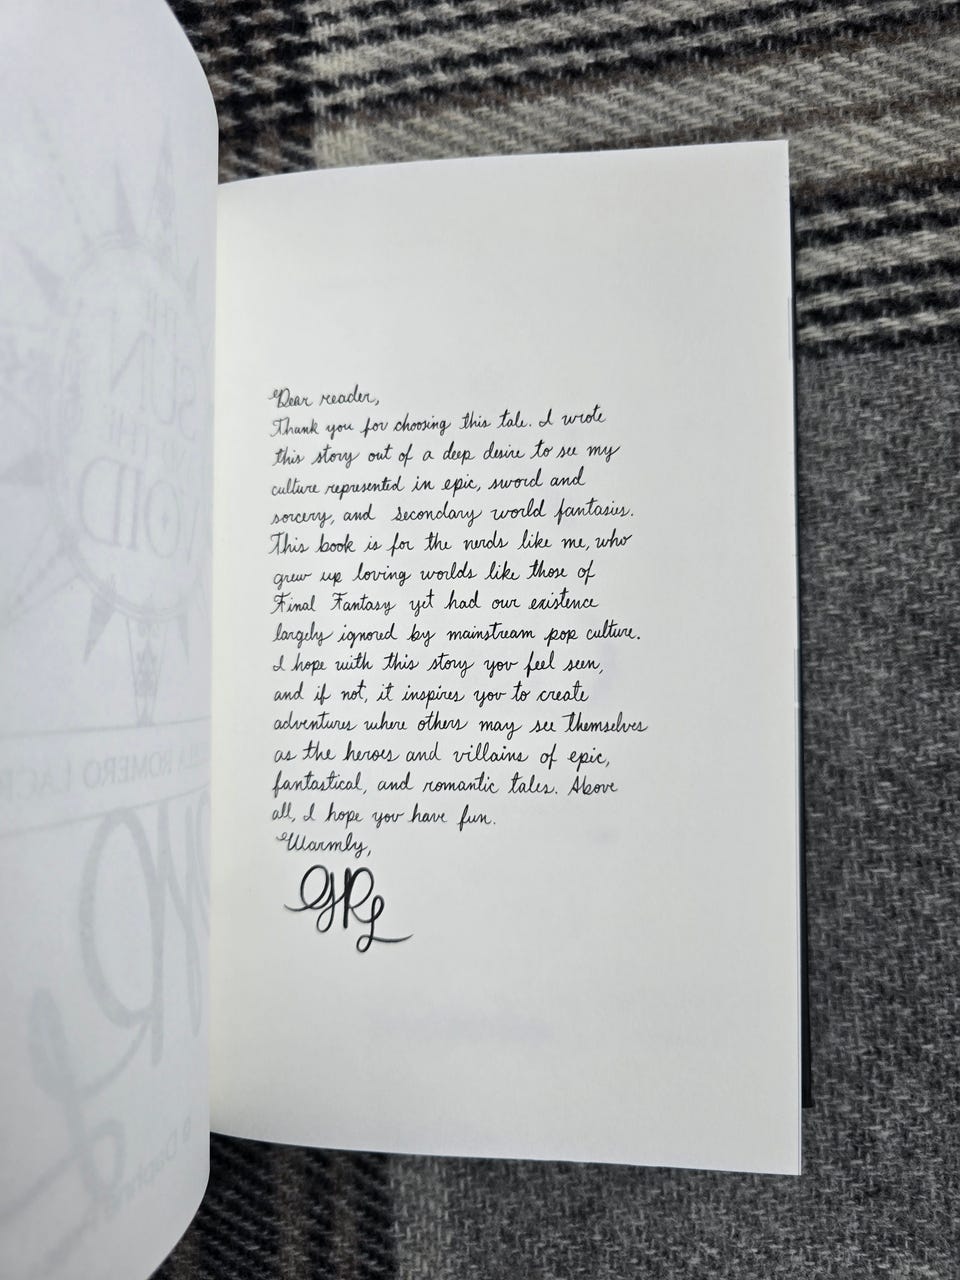 THE
SUN
THE
VOID
ROMERO LACR
Dear reader,
Thank you for choosing this tale. I wrote
this story out of a deep desire to see my
culture represented in epic, sword and
sorcery, and secondary world fantasies.
This book is for the nerds like me, who
grew up loving worlds like those of
Final Fantasy yet had our existence
largely ignored by mainstream pop culture.
I hope with this story you feel seen,
and if not, it inspires you to create
adventures where others may see themselves
as the heroes and villains of epic,
fantastical, and romantic tales. Above
all, I hope you have fun.
Warmly,
GRL